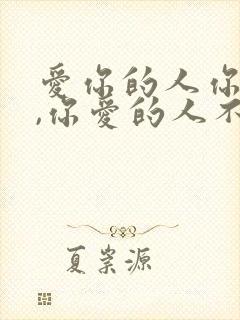 爱你的人你
,你爱的人不
夏崇源